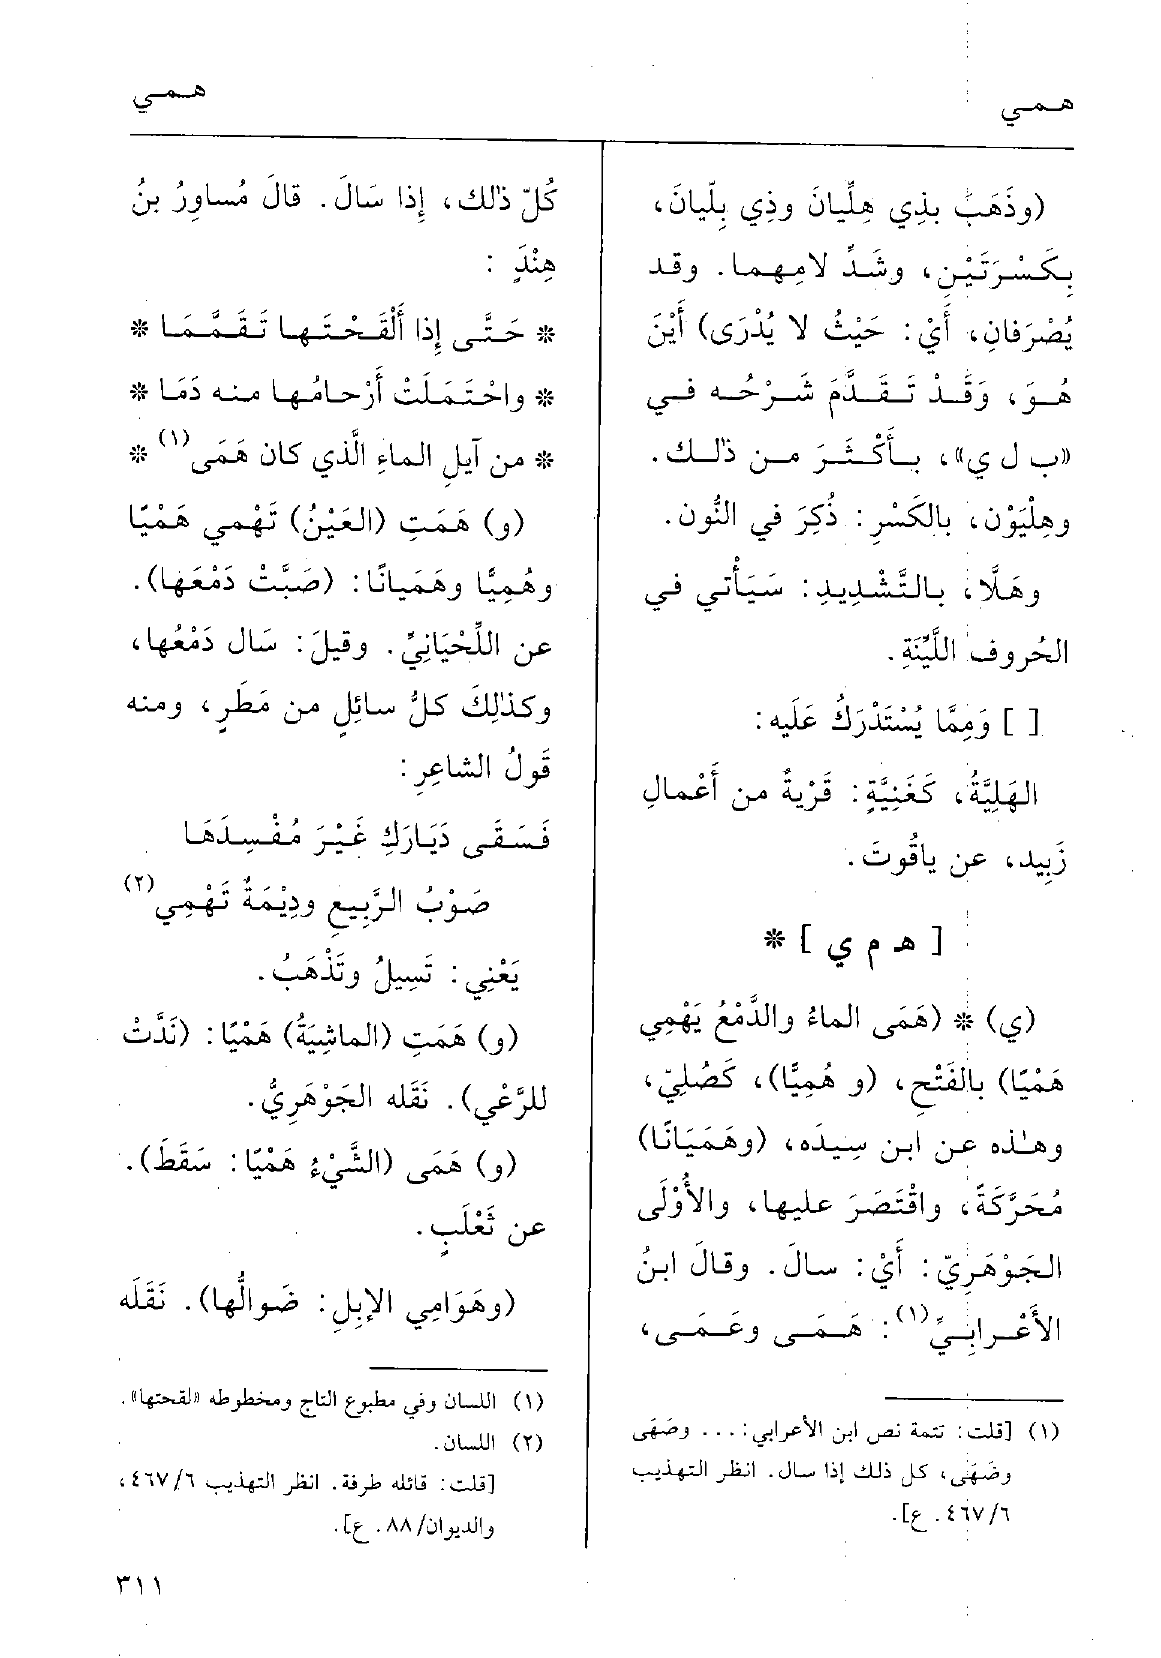 همي
همي
(وذَهَبَ بذِي هِلِّيَانَ وذِي بِلِّيَانَ،
بِكَسْرَتَيْنِ، وشَدِّ لامِهِما. وقد
يُصْرَفانِ، أَيْ: حَيْثُ لا يُدْرَى) أَيْنَ
هُوَ، وَقَدْ تَقَدَّمَ شَرْحُه في
«ب ل ي»، بِأَكْثَرَ من ذٰلك.
وهِلْيَوْن، بالكَسْرِ: ذُكِرَ في النُّون.
وهَلَّا، بالتَّشْدِيدِ: سَيَأْتي في
الحُروفِ اللَّيِّنَةِ.
[ ] وَمِمَّا يُسْتَدْرَكُ عَلَيه:
الهَلِيَّةُ، كَغَنِيَّةٍ: قَرْيةٌ من أَعْمالِ
زَبِيد، عن ياقُوتَ.
[ هـ م ي ] *
(ي) * (هَمَى الماءُ والدَّمْعُ يَهْمِي
هَمْيًا) بالفَتْحِ، (و هُمِيًّا)، كَصُلِيّ،
وهٰذه عن ابن سِيدَه، (وهَمَيَانًا)
مُحَرَّكَةً، واقْتَصَرَ عليها، والأُوْلَى
الجَوْهَرِيّ: أَيْ: سالَ. وقالَ ابنُ
الأَعْرابِيِّ(١): هَمَى وعَمَى،
(١) [قلت: تتمة نص ابن الأعرابي: ... وصَهَى
وضَهَى، كل ذلك إذا سال. انظر التهذيب
٤٦٧/٦. ع].
كُلّ ذٰلك، إِذا سَالَ. قالَ مُساوِرُ بنُ
هِنْدٍ :
* حَتَّى إِذا أَلْقَحْتَها تَقَمَّمَا *
* واحْتَمَلَتْ أَرْحامُها منه دَمَا *
* من آيلِ الماءِ الَّذي كان هَمَى(١) *
(و) هَمَتِ (العَيْنُ) تَهْمي هَمْيًا
وهُمِيًّا وهَمَيانًا: (صَبَّتْ دَمْعَها).
عن اللِّحْيَانِيِّ. وقيلَ: سَال دَمْعُها،
وكَذٰلِكَ كلُّ سائِلٍ من مَطَرٍ، ومنه
قَولُ الشاعِرِ:
فَسَقَى دَيَارَكِ غَيْرَ مُفْسِدَهَا
صَوْبُ الرَّبِيعِ ودِيْمَةٌ تَهْمِي(٢)
يَعْنِي: تَسِيلُ وتَذْهَبُ.
(و) هَمَتِ (الماشِيَةُ) هَمْيًا: (نَدَّتْ
للرَّعْي). نَقَله الجَوْهَرِيُّ.
(و) هَمَى (الشَّيْءُ هَمْيًا: سَقَطَ).
عن ثَعْلَبٍ.
(وهَوَامِي الإبِلِ: ضَوالُّها). نَقَلَه
(١) اللسان وفي مطبوع التاج ومخطوطه «لقحتها».
(٢) اللسان.
[قلت: قائله طرفة. انظر التهذيب ٤٦٧/٦،
والديوان/٨٨. ع].
٣١١